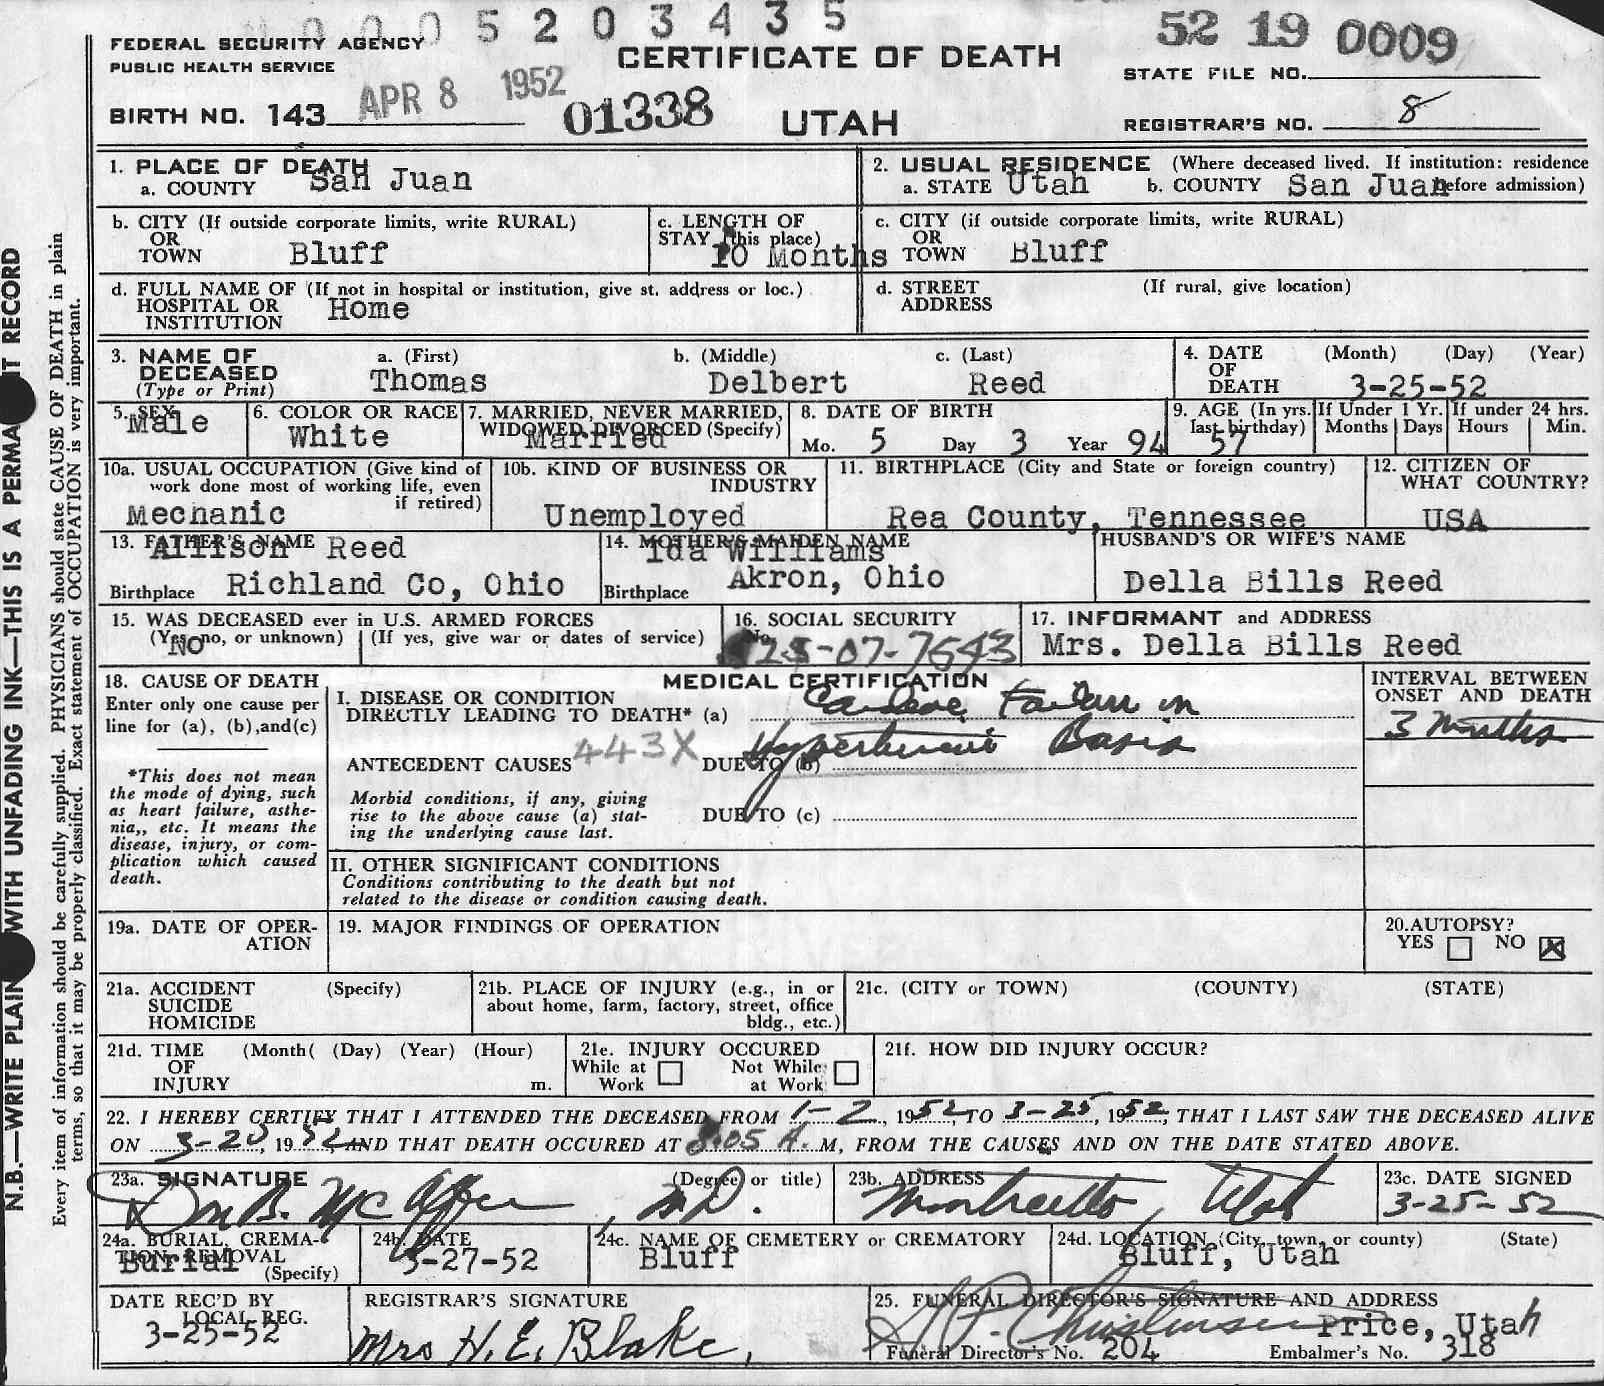 0005203435
52 19 0009
FEDERAL SECURITY AGENCY
PUBLIC HEALTH SERVICE
CERTIFICATE OF DEATH
STATE FILE NO.
BIRTH NO. 143 APR 8 1952 01338
UTAH
REGISTRAR'S NO. 8
1. PLACE OF DEATH
a. COUNTY San Juan
2. USUAL RESIDENCE (Where deceased lived. If institution: residence
a. STATE Utah b. COUNTY San Juan before admission)
b. CITY (If outside corporate limits, write RURAL)
OR
TOWN Bluff
c. LENGTH OF
STAY (this place)
10 Months
c. CITY (if outside corporate limits, write RURAL)
OR
TOWN Bluff
d. FULL NAME OF (If not in hospital or institution, give st. address or loc.)
HOSPITAL OR
INSTITUTION Home
d. STREET
ADDRESS
(If rural, give location)
3. NAME OF
DECEASED
(Type or Print)
a. (First) b. (Middle) c. (Last)
Thomas Delbert Reed
4. DATE
OF
DEATH
(Month) (Day) (Year)
3-25-52
5. SEX
Male
6. COLOR OR RACE
White
7. MARRIED, NEVER MARRIED,
WIDOWED, DIVORCED (Specify)
Married
8. DATE OF BIRTH
Mo. 5 Day 3 Year 94
9. AGE (In yrs.
last birthday)
57
If Under 1 Yr.
Months Days
If under 24 hrs.
Hours Min.
10a. USUAL OCCUPATION (Give kind of
work done most of working life, even
if retired)
Mechanic
10b. KIND OF BUSINESS OR
INDUSTRY
Unemployed
11. BIRTHPLACE (City and State or foreign country)
Rea County, Tennessee
12. CITIZEN OF
WHAT COUNTRY?
USA
13. FATHER'S NAME
Allison Reed
Birthplace Richland Co, Ohio
14. MOTHER'S MAIDEN NAME
Ida Williams
Birthplace Akron, Ohio
HUSBAND'S OR WIFE'S NAME
Della Bills Reed
15. WAS DECEASED ever in U.S. ARMED FORCES
(Yes, no, or unknown) (If yes, give war or dates of service)
No
16. SOCIAL SECURITY
No.
25-07-7643
17. INFORMANT and ADDRESS
Mrs. Della Bills Reed
18. CAUSE OF DEATH
Enter only one cause per
line for (a), (b), and (c)
*This does not mean
the mode of dying, such
as heart failure, asthe-
nia,, etc. It means the
disease, injury, or com-
plication which caused
death.
MEDICAL CERTIFICATION
I. DISEASE OR CONDITION
DIRECTLY LEADING TO DEATH* (a) Cardiac Failure in
443X Hypertensive Basis
ANTECEDENT CAUSES DUE TO (b)
Morbid conditions, if any, giving
rise to the above cause (a) stat-
ing the underlying cause last.
DUE TO (c)
INTERVAL BETWEEN
ONSET AND DEATH
3 Months
II. OTHER SIGNIFICANT CONDITIONS
Conditions contributing to the death but not
related to the disease or condition causing death.
19a. DATE OF OPER-
ATION
19. MAJOR FINDINGS OF OPERATION
20. AUTOPSY?
YES NO X
21a. ACCIDENT
SUICIDE
HOMICIDE
(Specify)
21b. PLACE OF INJURY (e.g., in or
about home, farm, factory, street, office
bldg., etc.)
21c. (CITY or TOWN) (COUNTY) (STATE)
21d. TIME
OF
INJURY
(Month( (Day) (Year) (Hour)
m.
21e. INJURY OCCURED
While at
Work
Not While
at Work
21f. HOW DID INJURY OCCUR?
22. I HEREBY CERTIFY THAT I ATTENDED THE DECEASED FROM 1-2, 1952, TO 3-25, 1952, THAT I LAST SAW THE DECEASED ALIVE
ON 3-20, 1952 AND THAT DEATH OCCURED AT 8:05 A. M, FROM THE CAUSES AND ON THE DATE STATED ABOVE.
23a. SIGNATURE (Degree or title)
Don B. McAffee, M.D.
23b. ADDRESS
Monticello, Utah
23c. DATE SIGNED
3-25-52
24a. BURIAL, CREMA-
TION, REMOVAL
(Specify)
Burial
24b. DATE
3-27-52
24c. NAME OF CEMETERY or CREMATORY
Bluff
24d. LOCATION (City, town, or county) (State)
Bluff, Utah
DATE REC'D BY
LOCAL REG.
3-25-52
REGISTRAR'S SIGNATURE
Mrs H. E. Blake,
25. FUNERAL DIRECTOR'S SIGNATURE AND ADDRESS
Christensen Price, Utah
Funeral Director's No. 204 Embalmer's No. 318
N.B.—WRITE PLAIN WITH UNFADING INK—THIS IS A PERMA T RECORD
Every item of information should be carefully supplied. PHYSICIANS should state CAUSE OF DEATH in plain
terms, so that it may be properly classified. Exact statement of OCCUPATION is very important.